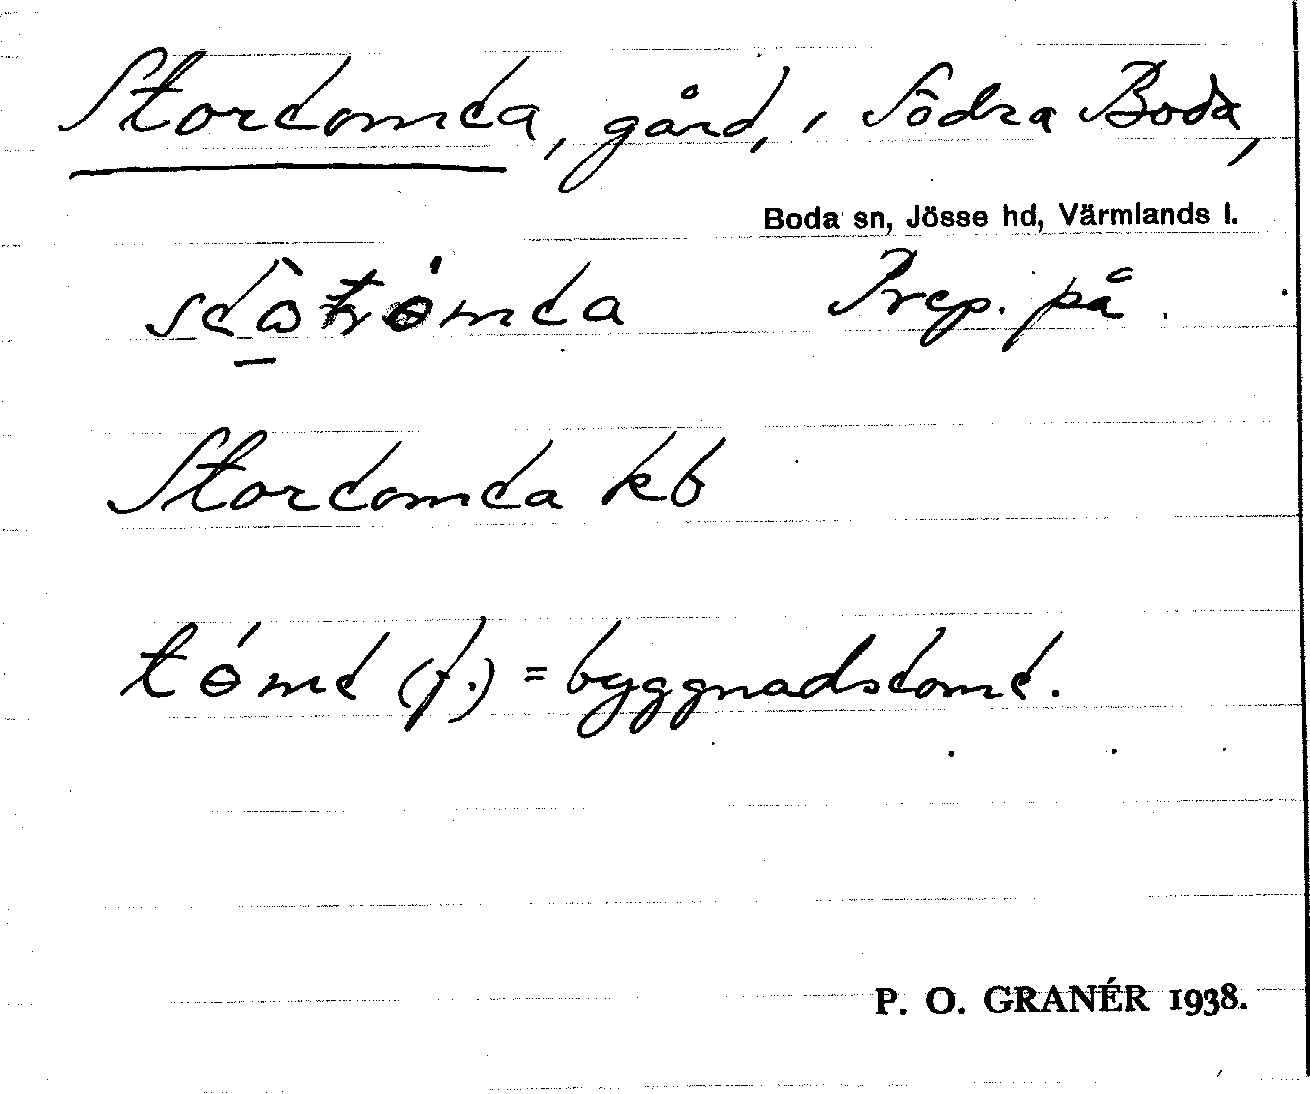 Stortomta, gård, i Södra Boda,
Boda sn, Jösse hd, Värmlands l.
Prep. på.
Stortomta kb
tɵ́mt (f.) = byggnadstomt.
P. O. GRANÉR 1938.